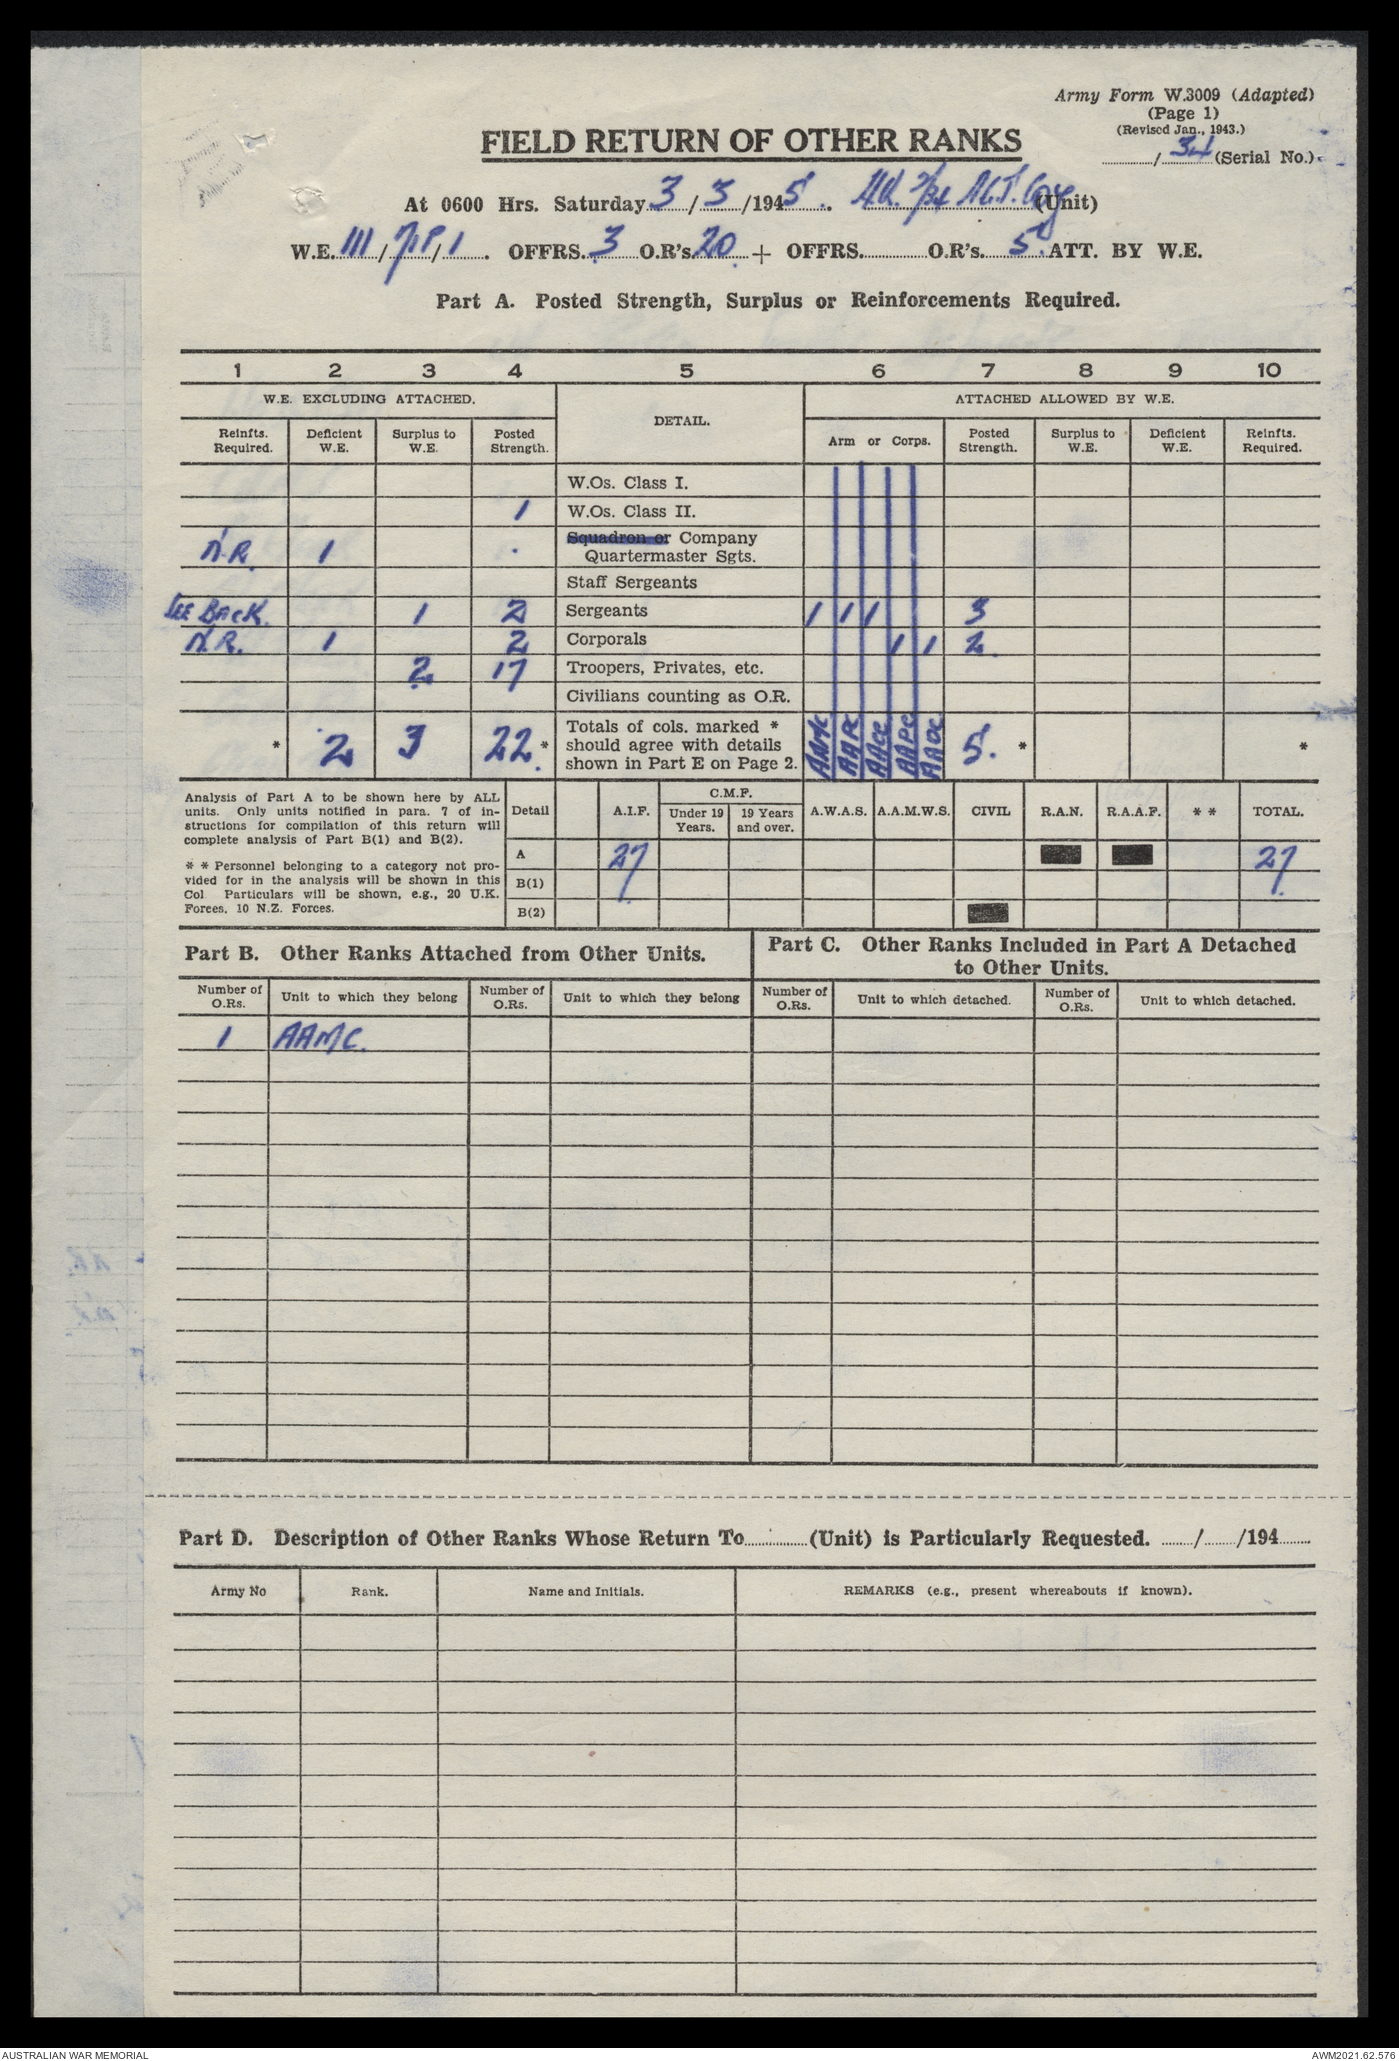 Army Form W.3009 (Adapted)
(Page 1)
(Revised Jan., 1943.)
FIELD RETURN OF OTHER RANKS
/ 34 (Serial No.)
At 0600 Hrs. Saturday 3/3/1945. H.Q. 2/84 A.G.T. Coy (Unit)
W.E. III / / 1. OFFRS. 3 O.R's. 20 + OFFRS. O.R's. 5 ATT. BY W.E.
Part A. Posted Strength, Surplus or Reinforcements Required.
1 2 3 4 5 6 7 8 9 10
W.E. EXCLUDING ATTACHED. DETAIL. ATTACHED ALLOWED BY W.E.
Reinfts. Required. Deficient W.E. Surplus to W.E. Posted Strength. Arm or Corps. Posted Strength. Surplus to W.E. Deficient W.E. Reinfts. Required.
W.Os. Class I.
1 W.Os. Class II.
N.R. 1 . Squadron or Company
Quartermaster Sgts.
Staff Sergeants
SEE BACK. 1 2 Sergeants 1 1 1 3
N.R. 1 2 Corporals 1 1 2
2 17 Troopers, Privates, etc.
Civilians counting as O.R.
* 2 3 22 * Totals of cols. marked * should agree with details shown in Part E on Page 2. AAMC AAPC AACC AAPC AAOC 5. * *
Analysis of Part A to be shown here by ALL
units. Only units notified in para. 7 of in-
structions for compilation of this return will
complete analysis of Part B(1) and B(2).
* * Personnel belonging to a category not pro-
vided for in the analysis will be shown in this
Col Particulars will be shown, e.g., 20 U.K.
Forces, 10 N.Z. Forces.
Detail A.I.F. C.M.F. Under 19 Years. 19 Years and over. A.W.A.S. A.A.M.W.S. CIVIL R.A.N. R.A.A.F. * * TOTAL.
A 27 27
B(1)
B(2)
Part B. Other Ranks Attached from Other Units.
Number of O.Rs. Unit to which they belong Number of O.Rs. Unit to which they belong
1 AAMC.
Part C. Other Ranks Included in Part A Detached
to Other Units.
Number of O.Rs. Unit to which detached. Number of O.Rs. Unit to which detached.
Part D. Description of Other Ranks Whose Return To (Unit) is Particularly Requested. / /194
Army No Rank. Name and Initials. REMARKS (e.g., present whereabouts if known).
AUSTRALIAN WAR MEMORIAL AWM2021.62.576